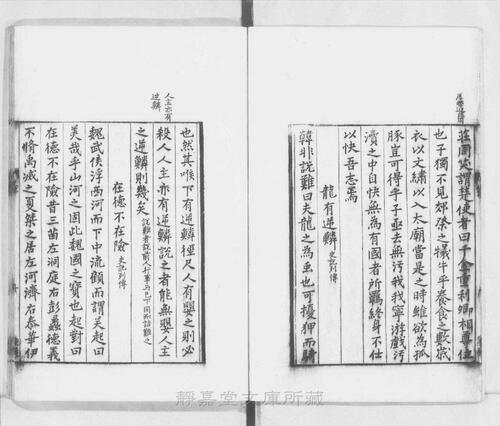 莊周笑謂楚使者曰千金重利卿相尊位
也子獨不見郊祭之犧牛乎養食之數歲
衣以文繡以入太廟當是之時雖欲為孤
豚豈可得乎子亟去無汚我我寧游戲汚
瀆之中自快無為有國者所羈終身不仕
以快吾志焉
龍有逆鱗 史記列傳
韓非說難曰夫龍之為虫也可擾狎而騎
人主亦有
逆鱗
也然其喉下有逆鱗徑尺人有嬰之則必
殺人人主亦有逆鱗說之者能無嬰人主
之逆鱗則幾矣
在德不在險 史記列傳
魏武侯浮西河而下中流顧而謂吳起曰
美哉乎山河之固此魏國之寶也起對曰
在德不在險昔三苗左洞庭右彭蠡德義
不脩禹滅之夏桀之居左河濟右泰華伊
靜嘉堂文庫所藏